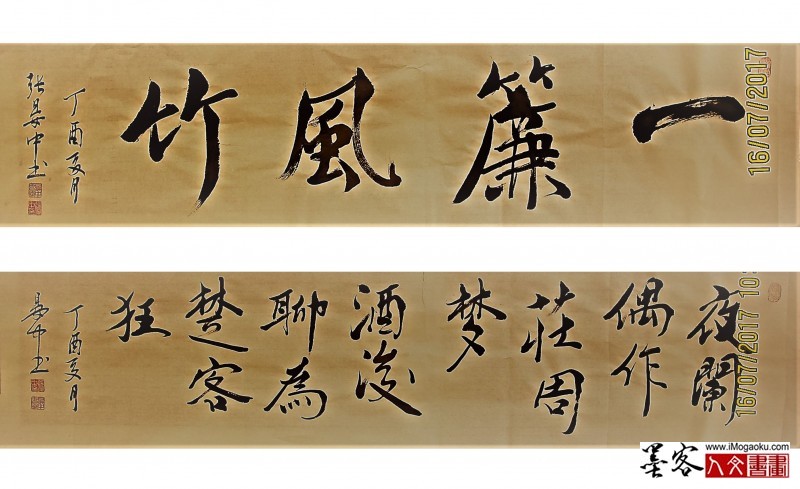 一簾風竹
丁酉夏月
张晏中书
16/07/2017
夜闌
偶作
莊周
梦
酒後
聊為
楚客
狂
丁酉夏月
晏中书
16/07/2017
墨客
www.iMogaoku.com
人文書畫